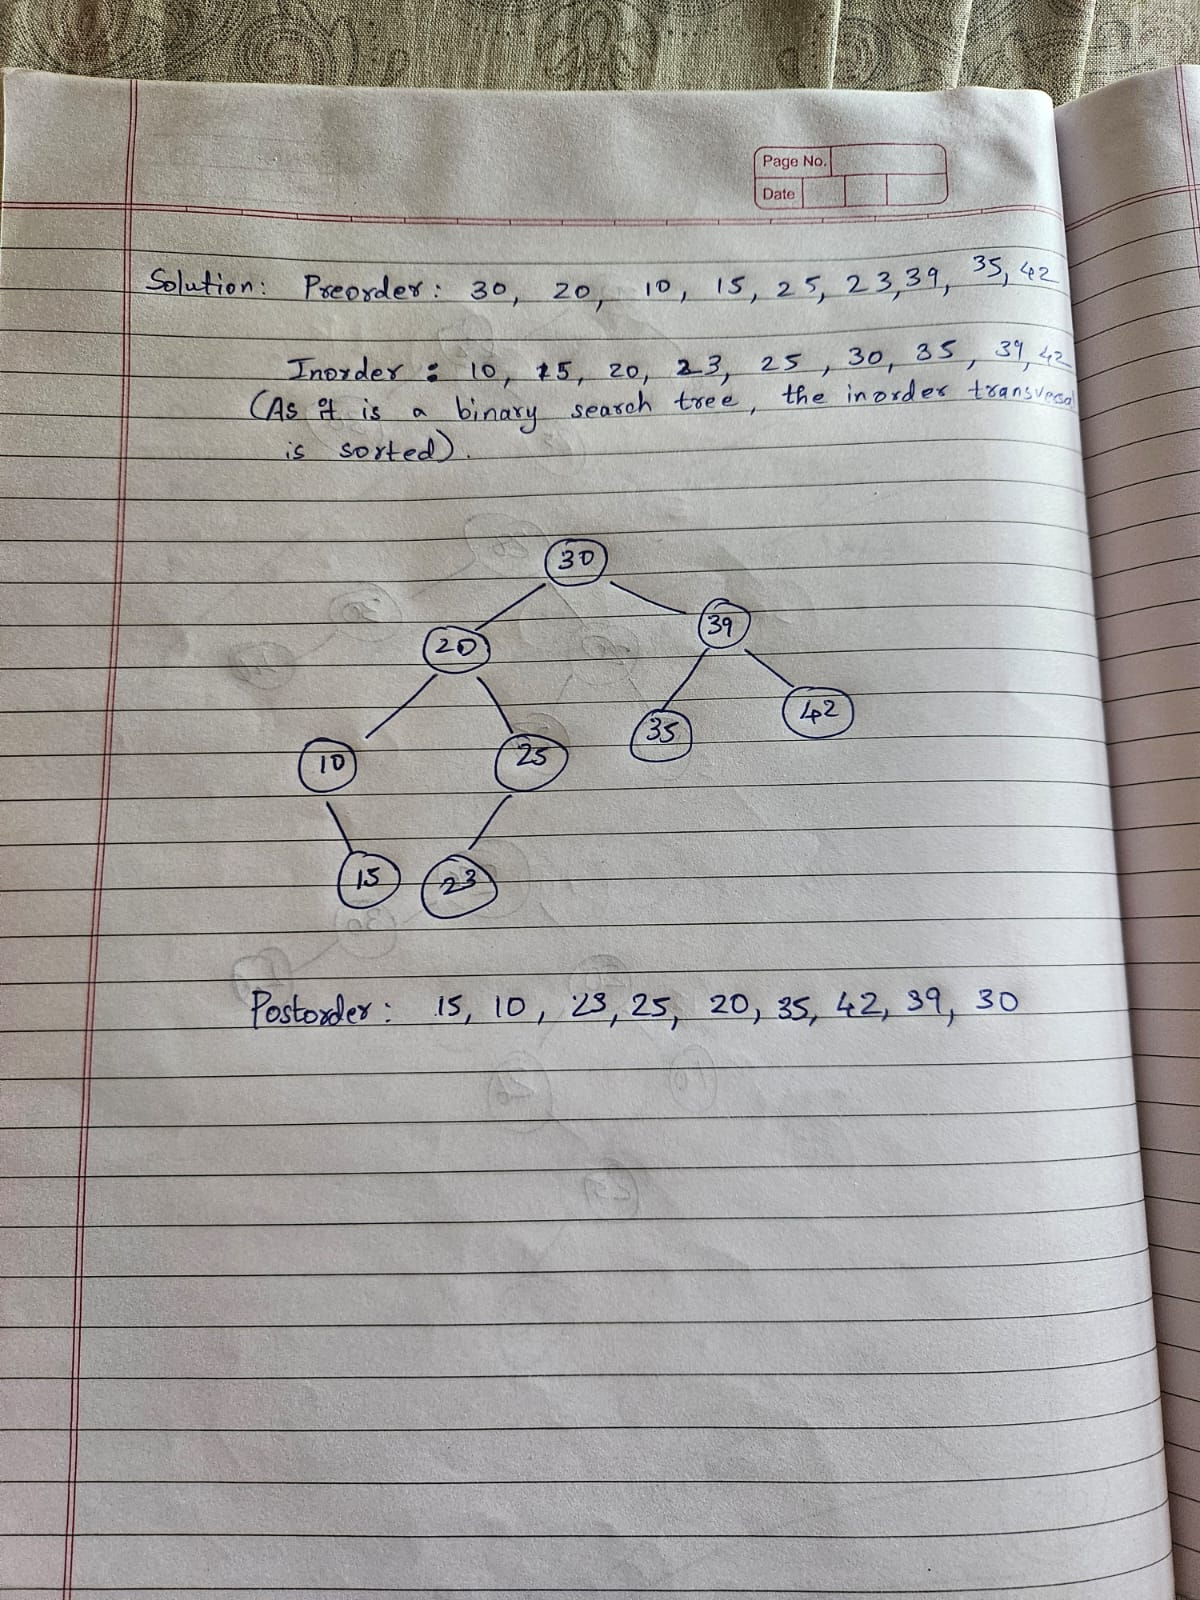 Page No.
Date
Solution: Preorder: 30, 20, 10, 15, 25, 23, 39, 35, 42
Inorder: 10, 15, 20, 23, 25, 30, 35, 39, 42
(As it is a binary search tree, the inorder transversal
is sorted).
30
20 39
10 25 35 42
15 23
Postorder: 15, 10, 23, 25, 20, 35, 42, 39, 30